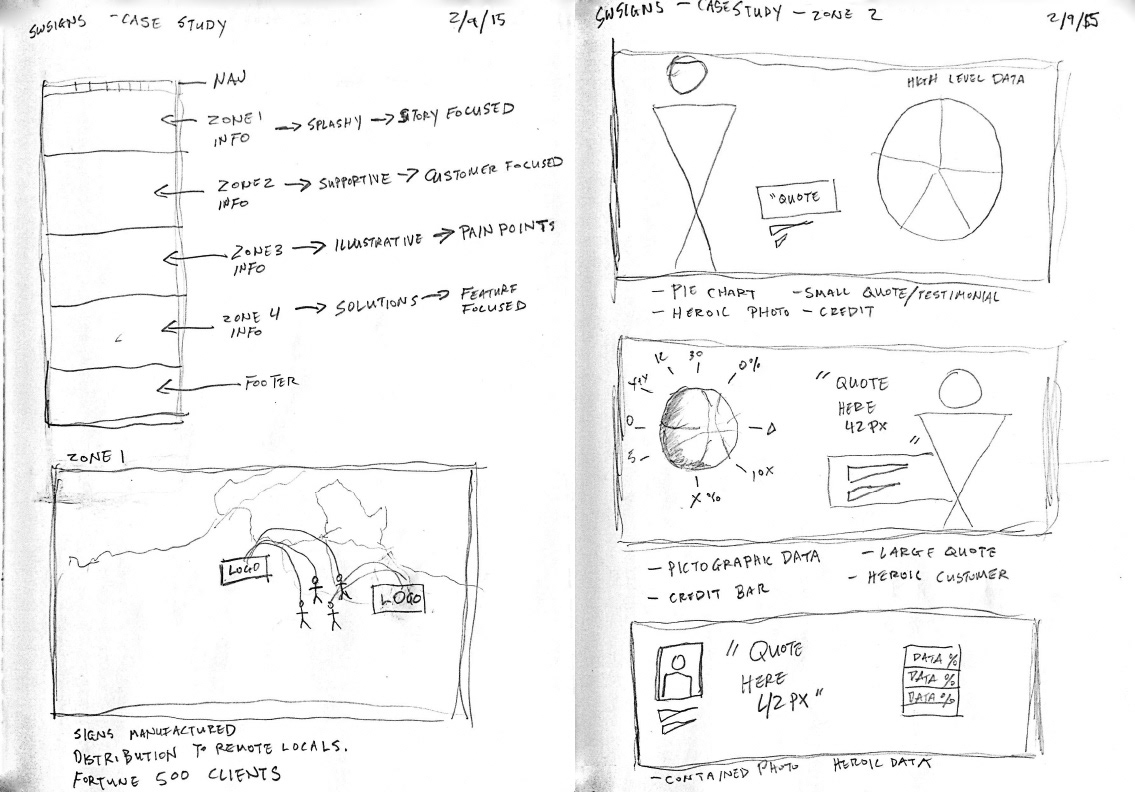 SWSIGNS - CASE STUDY
2/9/15
NAV
ZONE 1 INFO → SPLASHY → STORY FOCUSED
ZONE 2 INFO → SUPPORTIVE → CUSTOMER FOCUSED
ZONE 3 INFO → ILLUSTRATIVE → PAIN POINTS
ZONE 4 INFO → SOLUTIONS → FEATURE FOCUSED
FOOTER
ZONE 1
LOGO
LOGO
SIGNS MANUFACTURED
DISTRIBUTION TO REMOTE LOCALS.
FORTUNE 500 CLIENTS
SWSIGNS - CASE STUDY - ZONE 2
2/9/15
HIGH LEVEL DATA
"QUOTE
- PIE CHART - SMALL QUOTE/TESTIMONIAL
- HEROIC PHOTO - CREDIT
12
30
0%
0
5
10X
X%
" QUOTE
HERE
42PX
"
- PICTOGRAPHIC DATA - LARGE QUOTE
- CREDIT BAR - HEROIC CUSTOMER
" QUOTE
HERE
42PX"
DATA %
DATA %
DATA %
- CONTAINED PHOTO HEROIC DATA